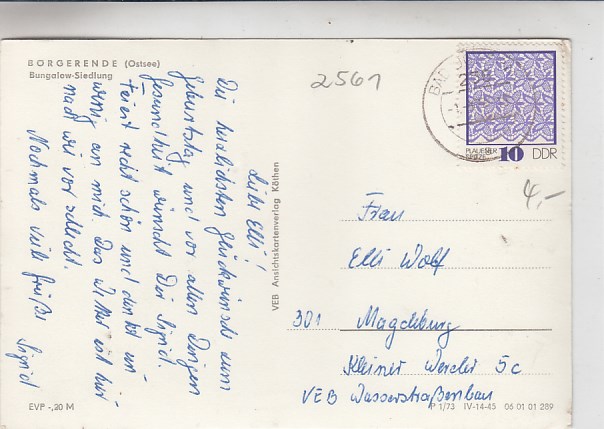 BÖRGERENDE (Ostsee)
Bungalow-Siedlung
2561
BAD
PLAUENER
SPITZE
10 DDR
4,-
Liebe Elli!
Die herzlichsten Glückwünsche zum
Geburtstag und vor allen Dingen
Gesundheit wünscht Dir Sigrid.
Feiert recht schön und denkt ein
wenig an mich. Das Wetter ist hier
nach wie vor schlecht.
Nochmals viele Grüße
Sigrid
VEB Ansichtskartenverlag Köthen
Frau
Elli Wolf
301 Magdeburg
Kleiner Werder 5c
VEB Wasserstraßenbau
EVP -,20 M
P 1/73 IV-14-45 05 01 01 289